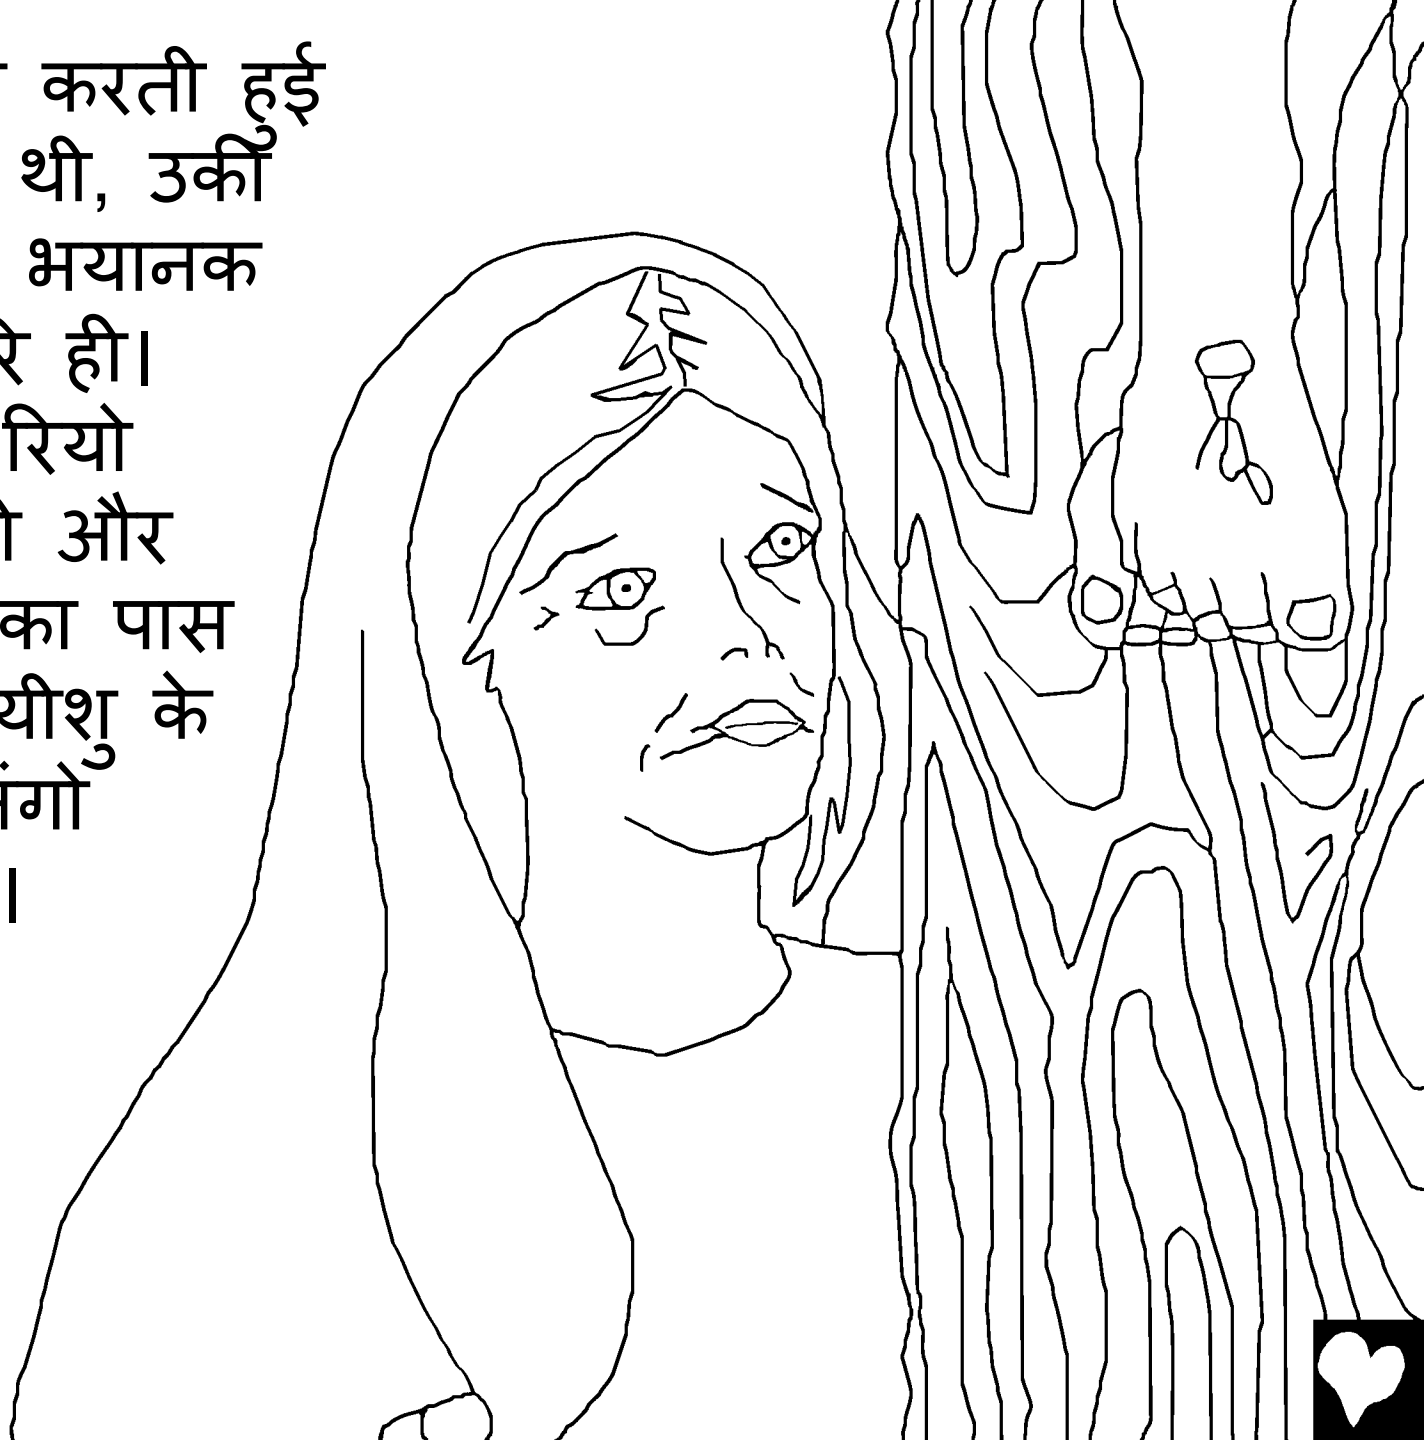 करती हुई
थी, उकी
भयानक
ही।
और
का पास
यीशु के